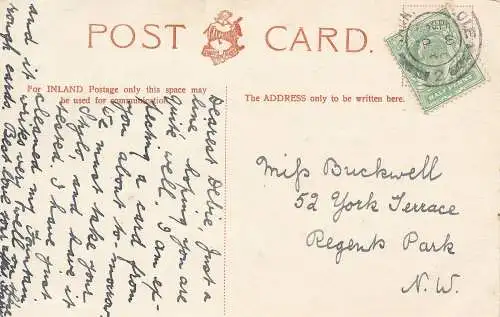 POST CARD.
For INLAND Postage only this space may
be used for communication.
The ADDRESS only to be written here.
Dearest Debie, Just a
line hoping you are
quite well. I am ex-
pecting a card from
you about to-morrow
I must take your
Stylo, and have it
tested. I have just
cleaned my fountain
and it writes very well on the
rough cards. Best love
Miss Buckwell
52 York Terrace
Regents Park
N.W.
HALFPENNY